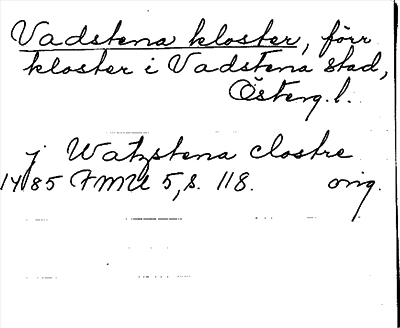 Vadstena kloster, förr
kloster i Vadstena stad,
Österg.l.
j Watzstena clostre
1485 FMU 5, s. 118. orig.